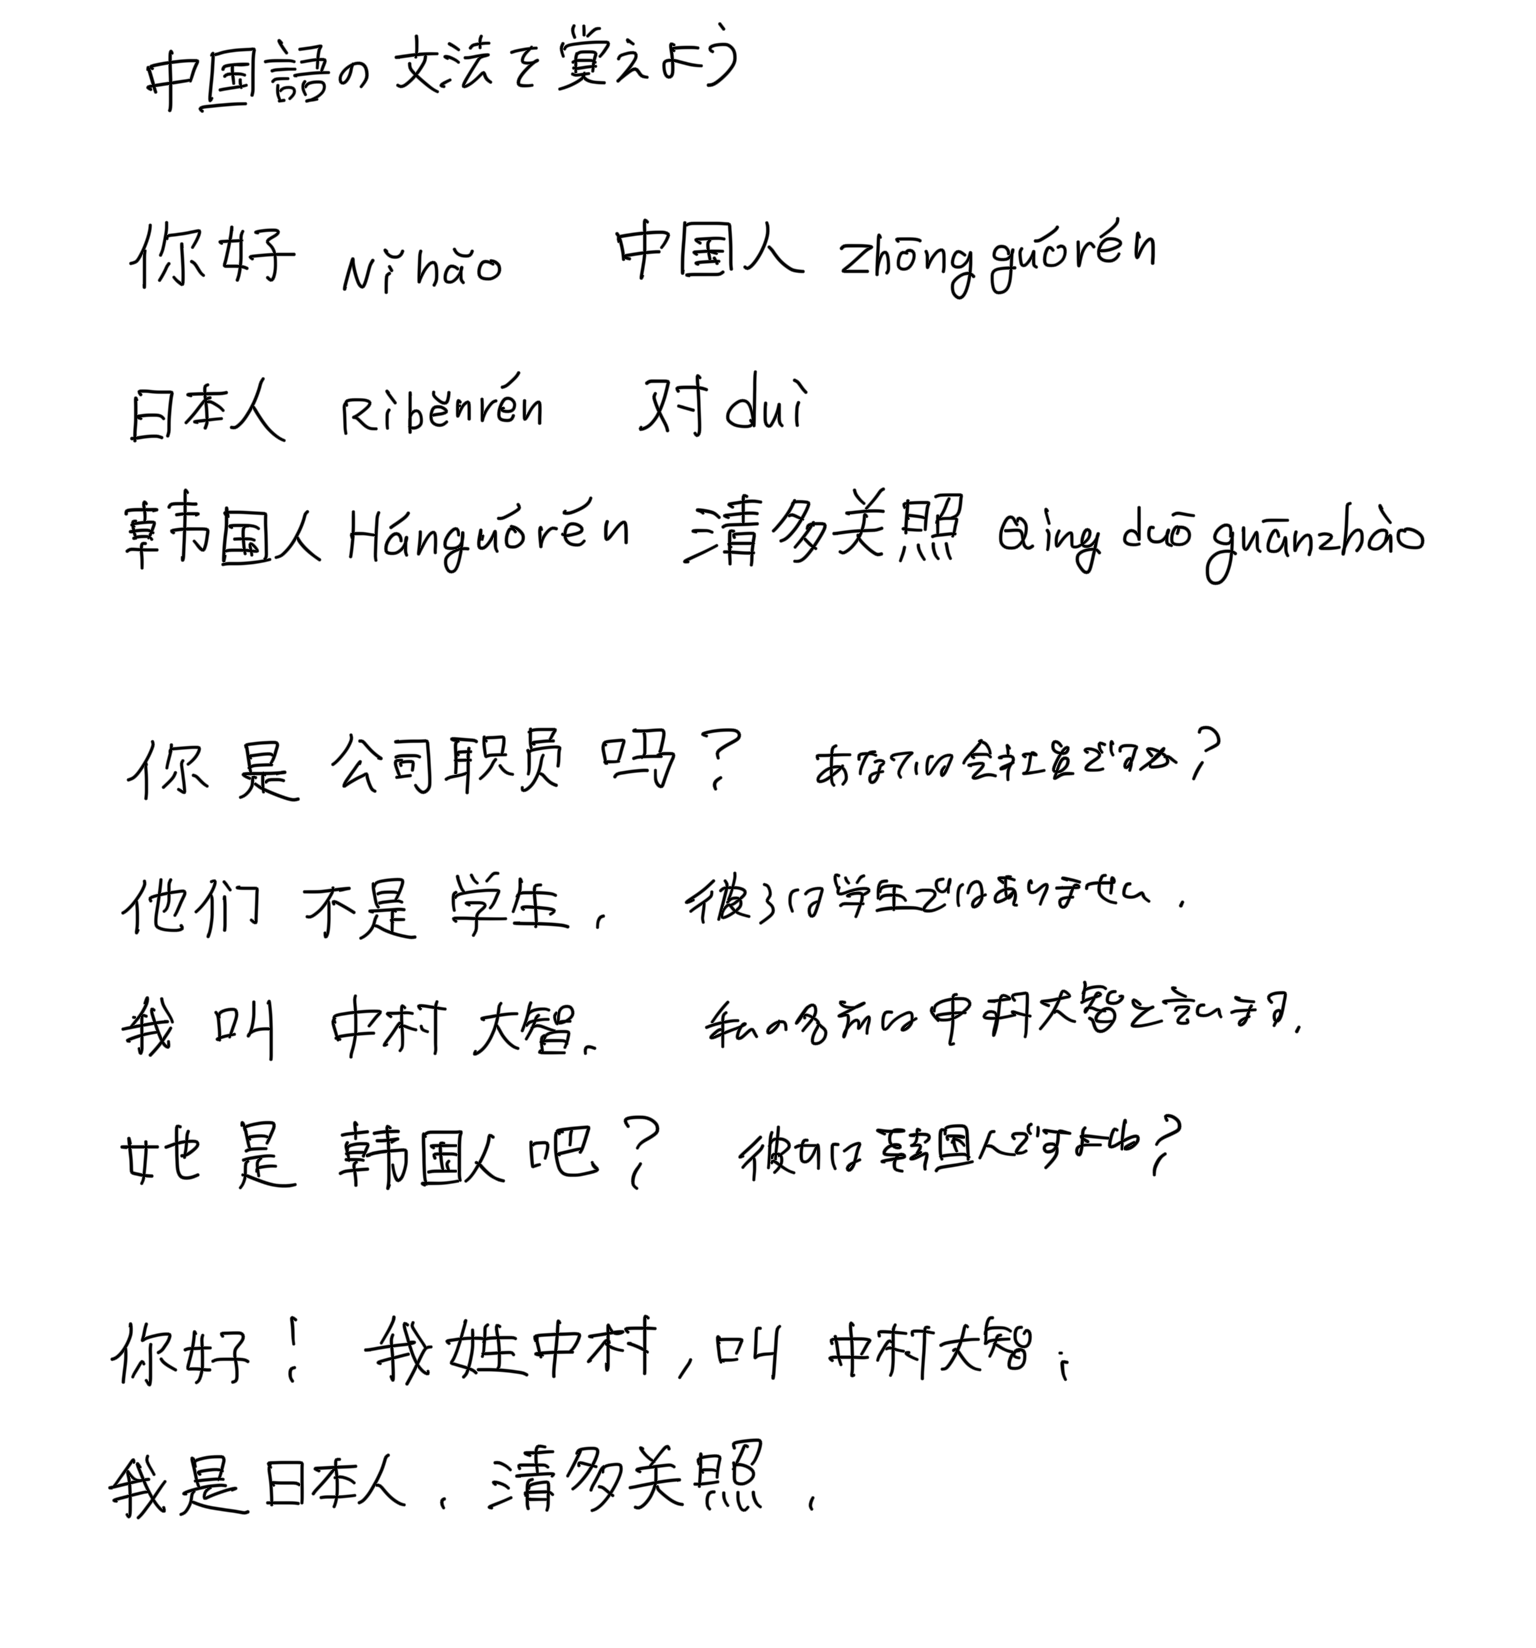 中国語の文法を覚えよう
你好 Nǐhǎo 中国人 Zhōngguórén
日本人 Rìběnrén 对 duì
韩国人 Hánguórén 清多关照 Qing duō guānzhào
你是公司职员吗? あなたは会社員ですか?
他们不是学生. 彼らは学生ではありません.
我叫中村大智. 私の名前は中村大智と言います.
她是韩国人吧? 彼女は韓国人ですよね?
你好! 我姓中村,叫中村大智;
我是日本人. 清多关照.